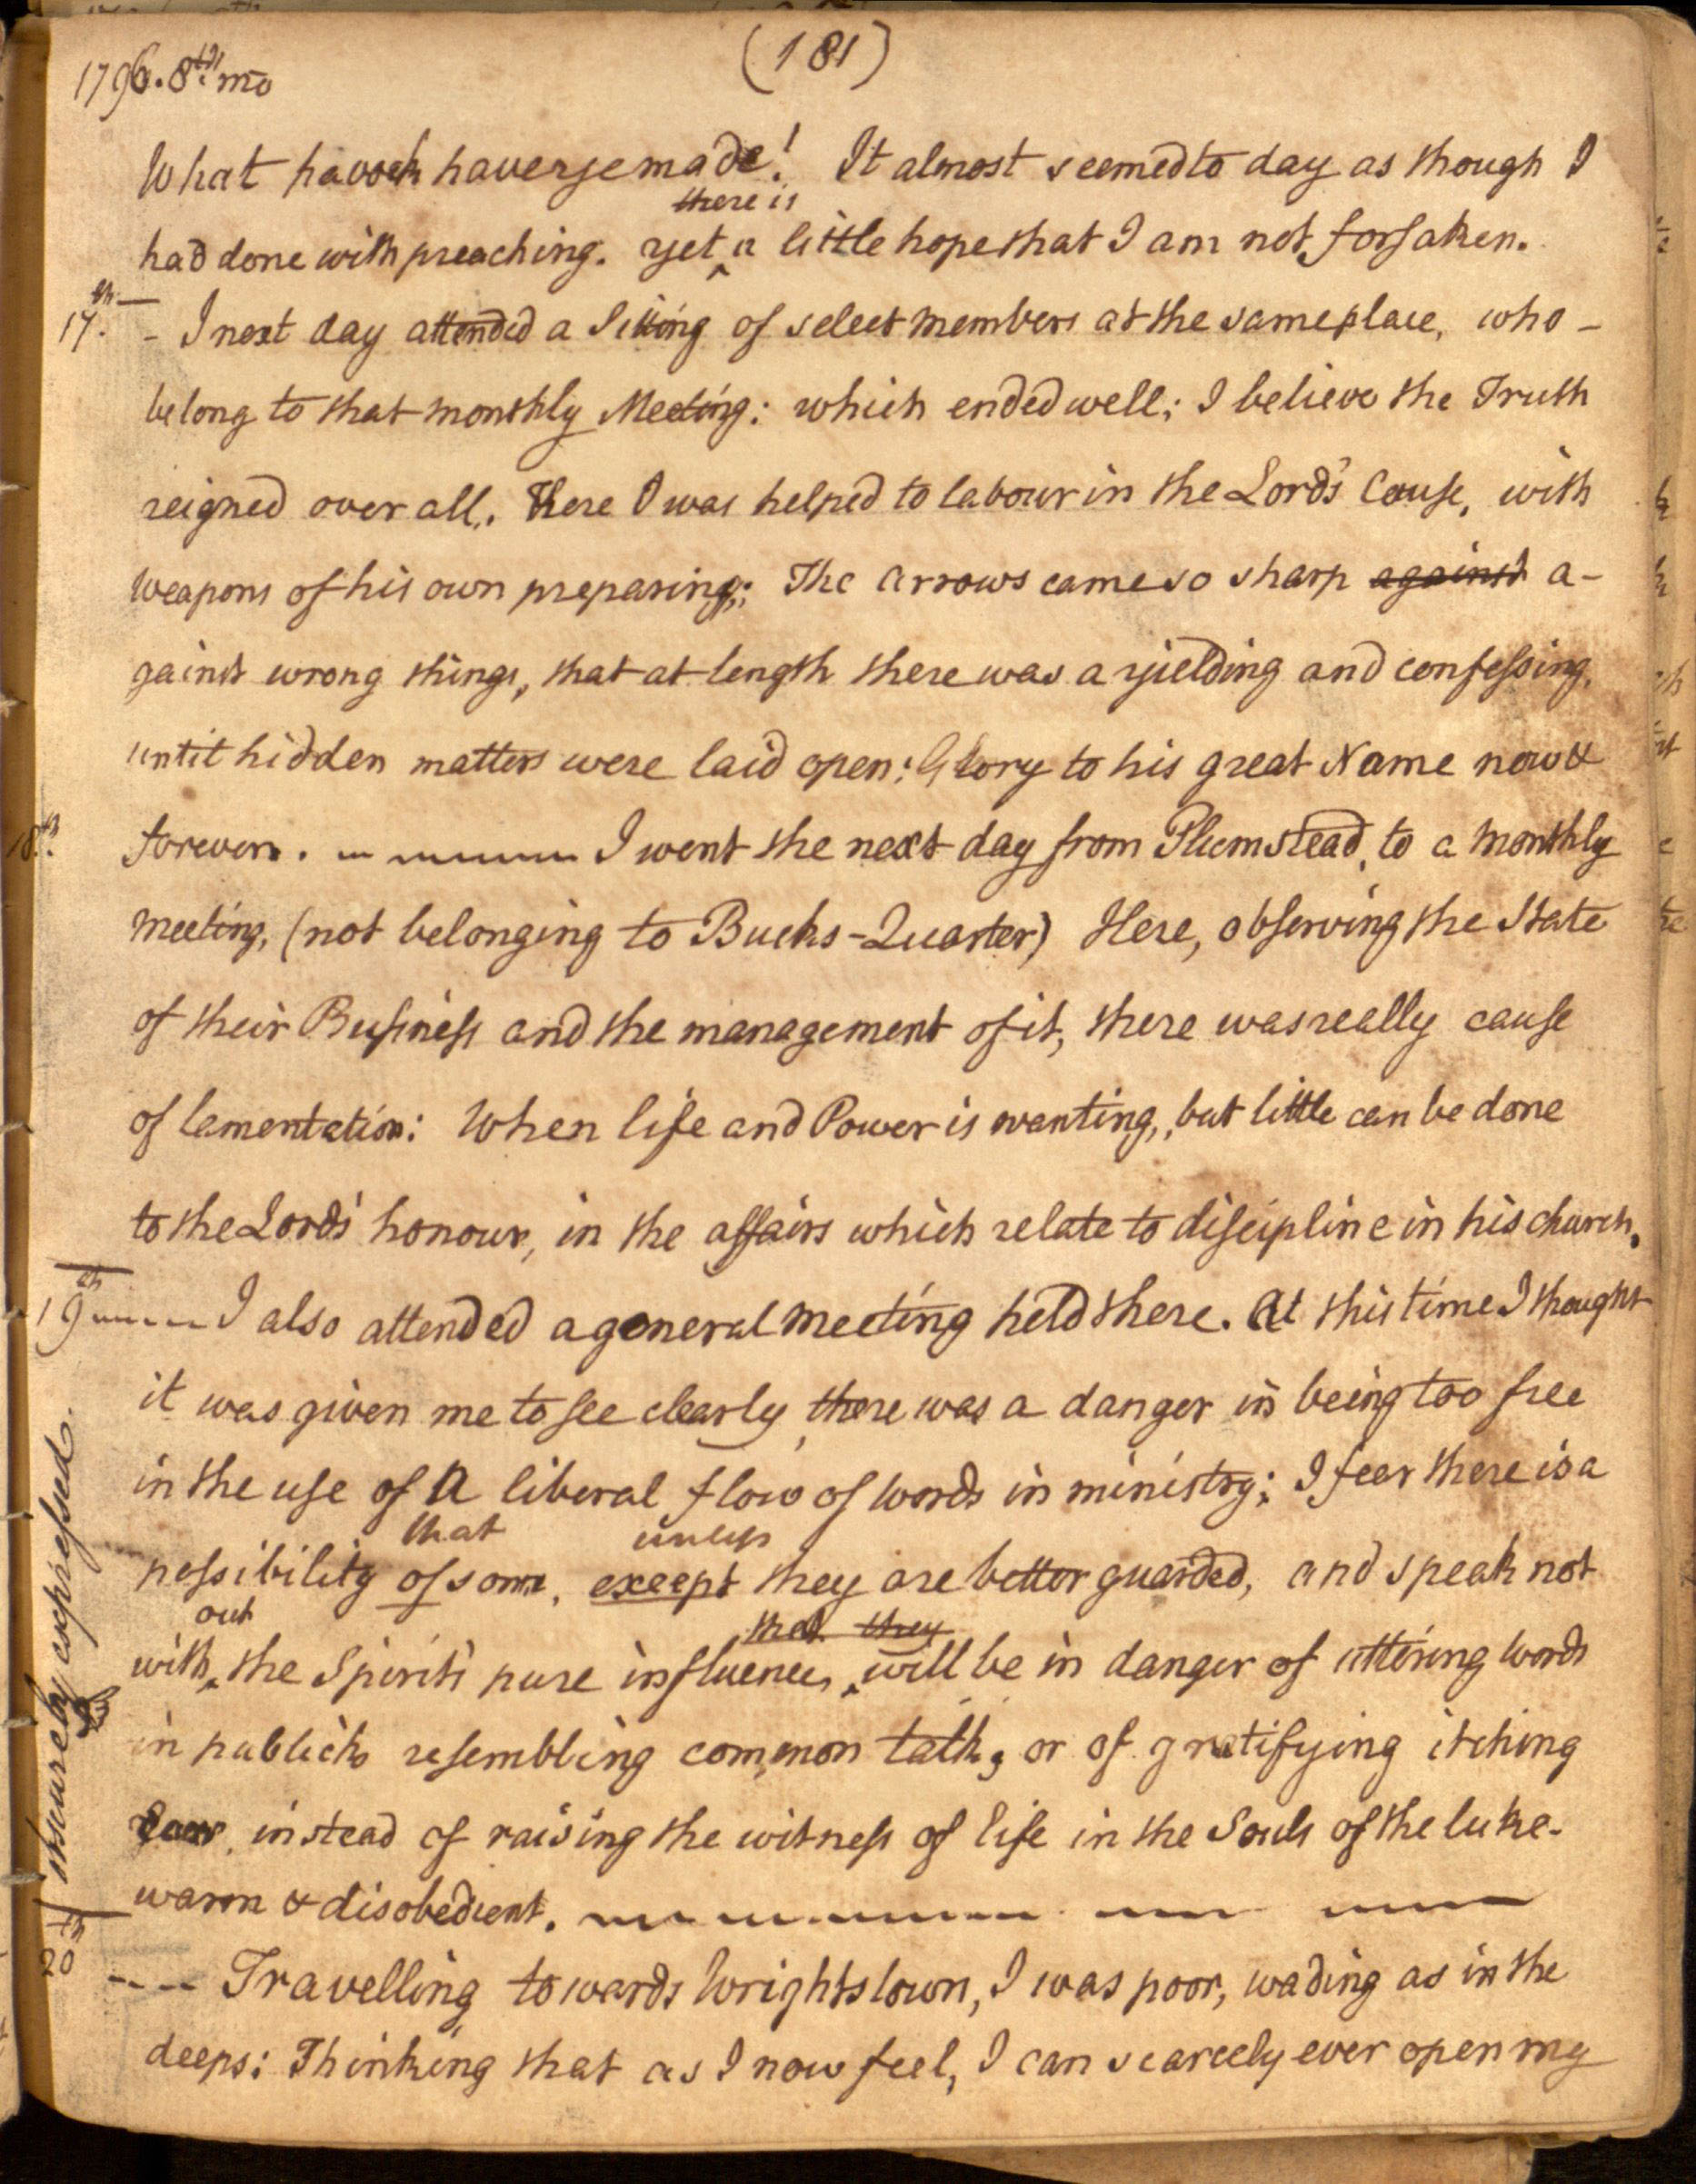 (181)
1796. 8th mo
What havock have ye made! It almost seemed to day as though I
there is
had done with preaching. yet ^ a little hope that I am not forsaken.
17th. - I next day attended a Sitting of select members at the same place, who -
belong to that monthly Meeting: which ended well; I believe the Truth
reigned over all. Here I was helped to labour in the Lord's Cause, with
weapons of his own preparing; The arrows came so sharp against a-
gainst wrong things, that at length there was a yielding and confessing,
until hidden matters were laid open: Glory to his great Name now &
18th. forever. I went the next day from Plumstead, to a monthly
meeting, (not belonging to Bucks-Quarter) Here, observing the State
of their Business and the management of it, there was really cause
of lamentation: When life and Power is wanting, but little can be done
to the Lord's honour, in the affairs which relate to discipline in his church.
19th I also attended a general meeting held there. At this time I thought
it was given me to see clearly, there was a danger in being too free
in the use of A liberal flow of words in ministry; I fear there is a
that unless
possibility of some, except they are better guarded, and speak not
out that they
with ^ the Spirit's pure influence, ^ will be in danger of uttering words
in publick resembling common talk, or of gratifying itching
Ears, instead of raising the witness of life in the Souls of the luke-
warm & disobedient.
20th ---- Travelling towards Wrightstown, I was poor, wading as in the
deeps: Thinking that as I now feel, I can scarcely ever open my
obscurely expressed.